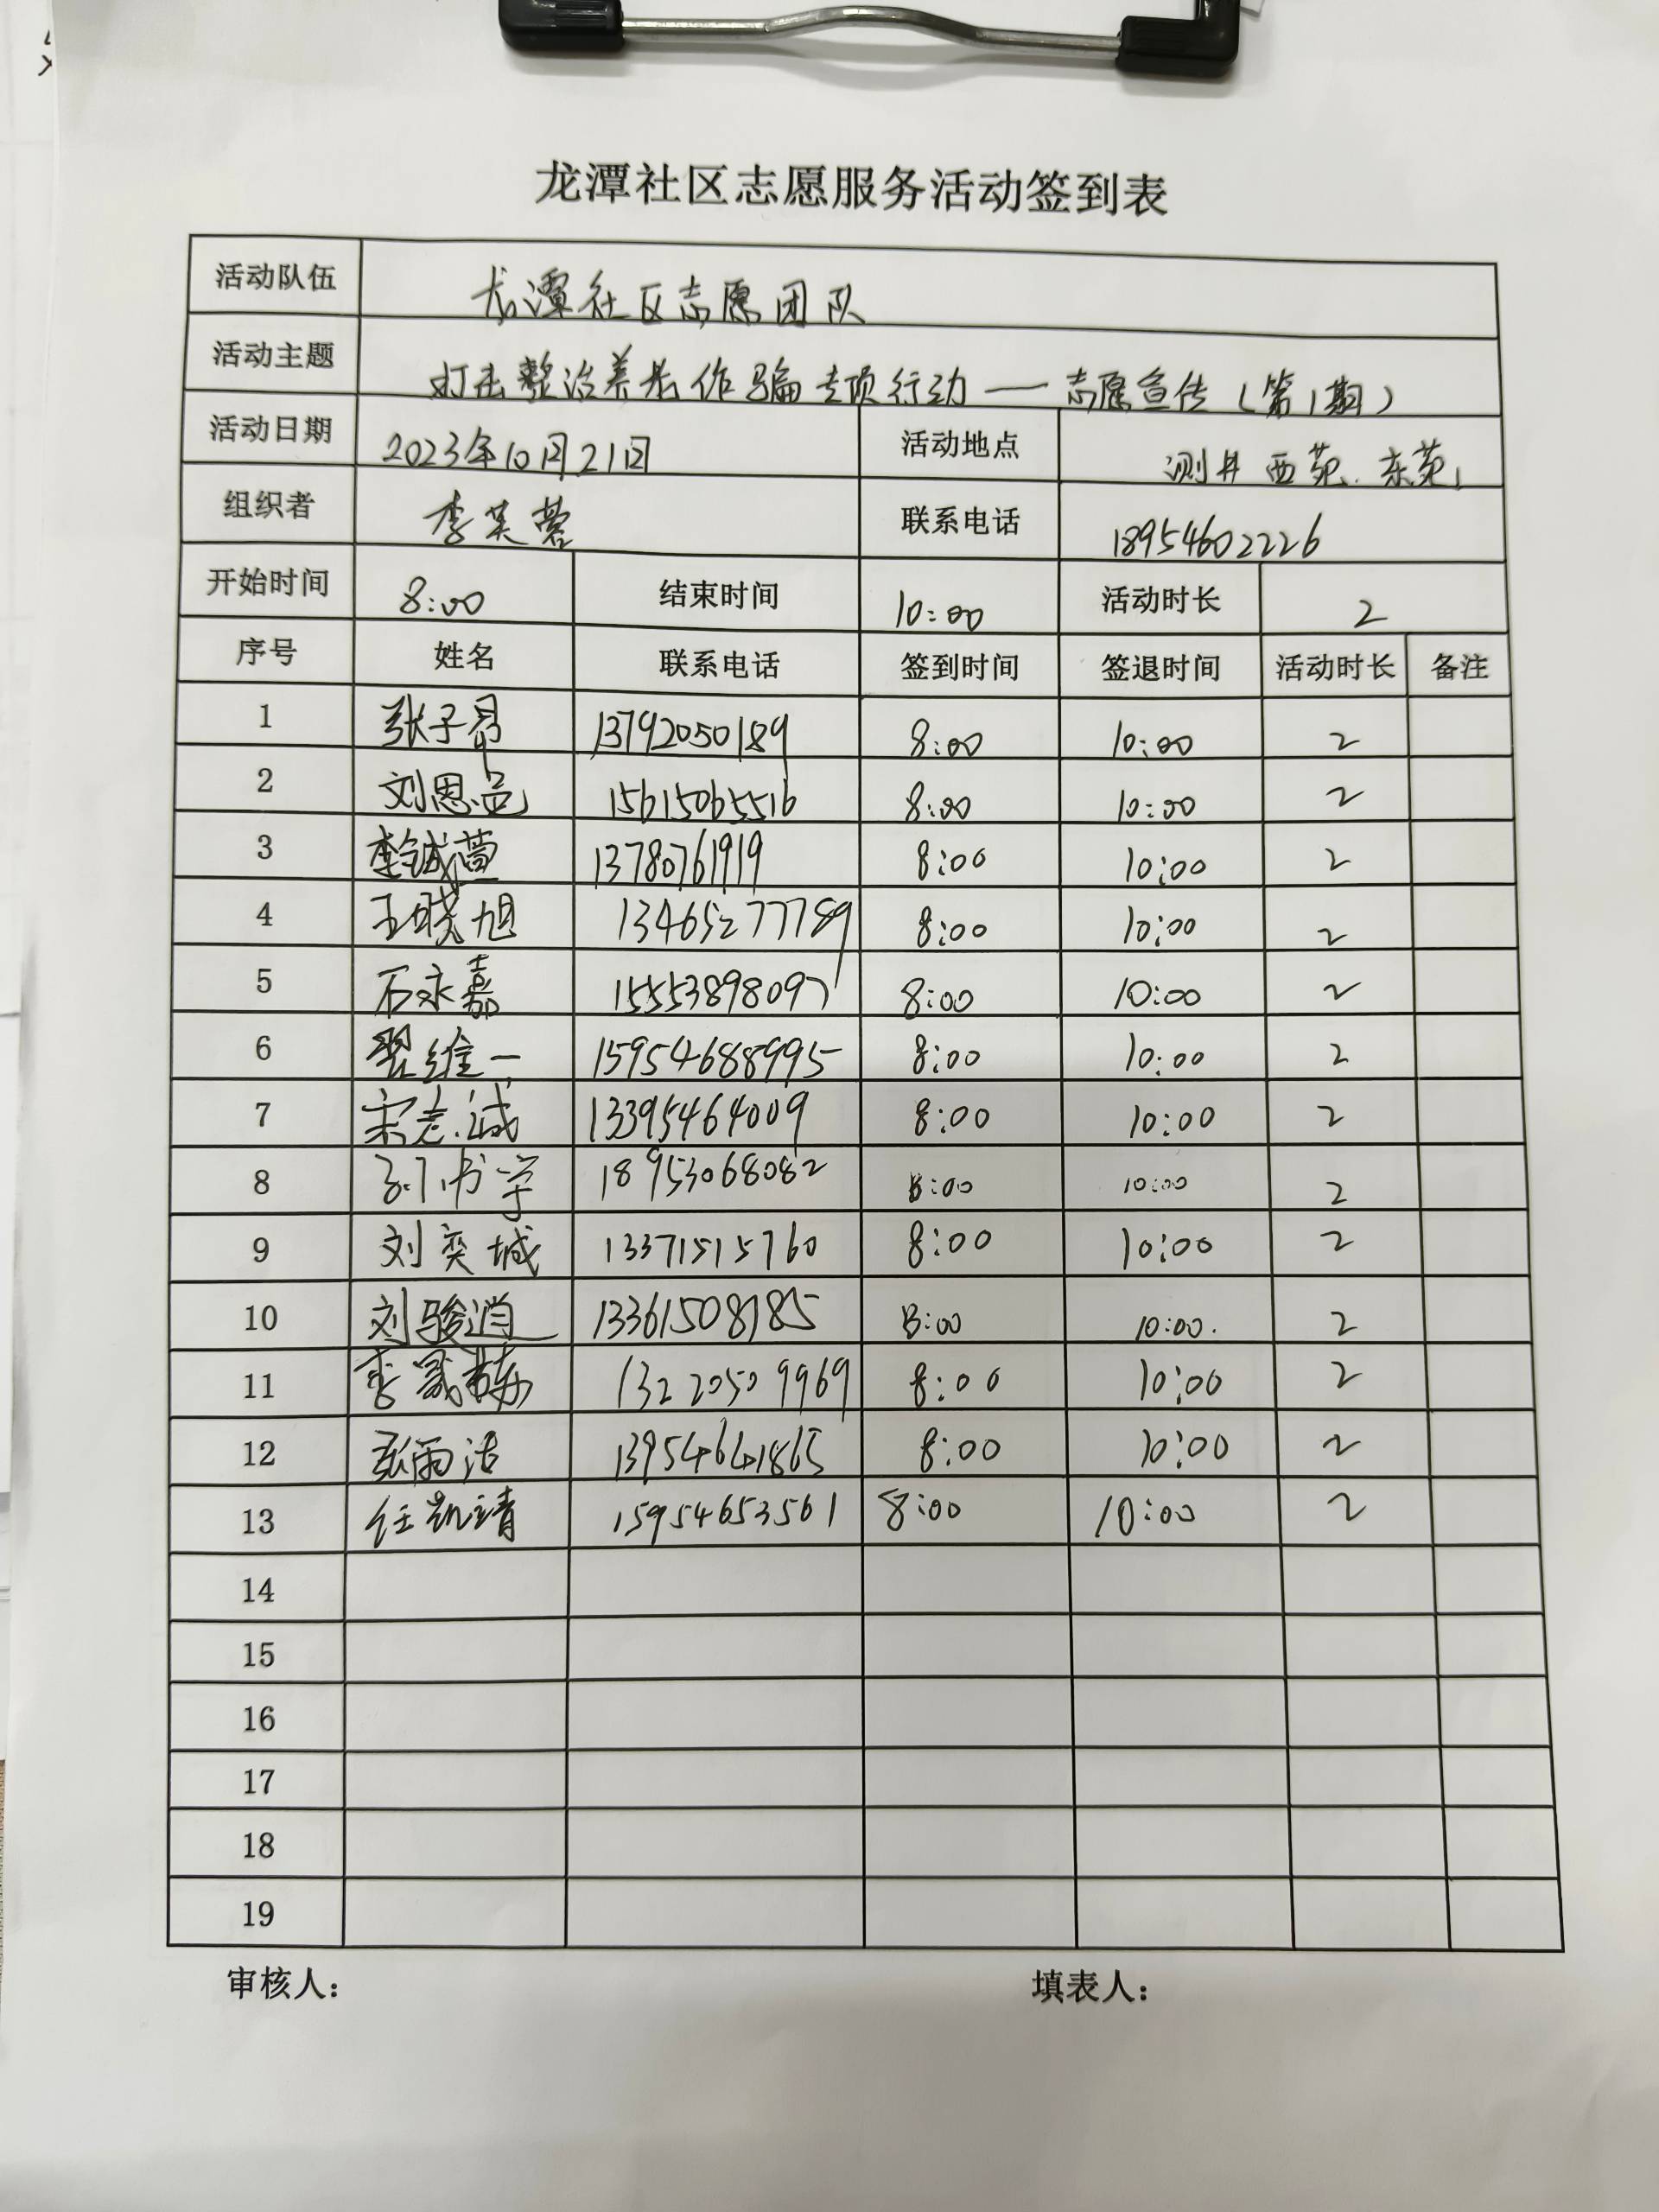 龙潭社区志愿服务活动签到表
活动队伍 龙潭社区志愿团队
活动主题 打击整治养老诈骗专项行动——志愿宣传(第1期)
活动日期 2023年10月21日 活动地点 测井西苑、东苑
组织者 李芙蓉 联系电话 18954602226
开始时间 8:00 结束时间 10:00 活动时长 2
序号 姓名 联系电话 签到时间 签退时间 活动时长 备注
1 张子昂 13792050189 8:00 10:00 2
2 刘恩 15615065516 8:00 10:00 2
3 李铖萱 13780761919 8:00 10:00 2
4 王晓旭 13465277789 8:00 10:00 2
5 石永嘉 15553898097 8:00 10:00 2
6 翟维一 15954688995 8:00 10:00 2
7 宋志诚 13395464009 8:00 10:00 2
8 18953068082 8:00 10:00 2
9 刘奕城 13371515760 8:00 10:00 2
10 刘骏逍 13361508185 8:00 10:00.  2
11 李晟 13220509969 8:00 10:00 2
12 张雨洁 13954641865 8:00 10:00 2
13 任凯靖 15954653561 8:00 10:00 2
14
15
16
17
18
19
审核人： 填表人：